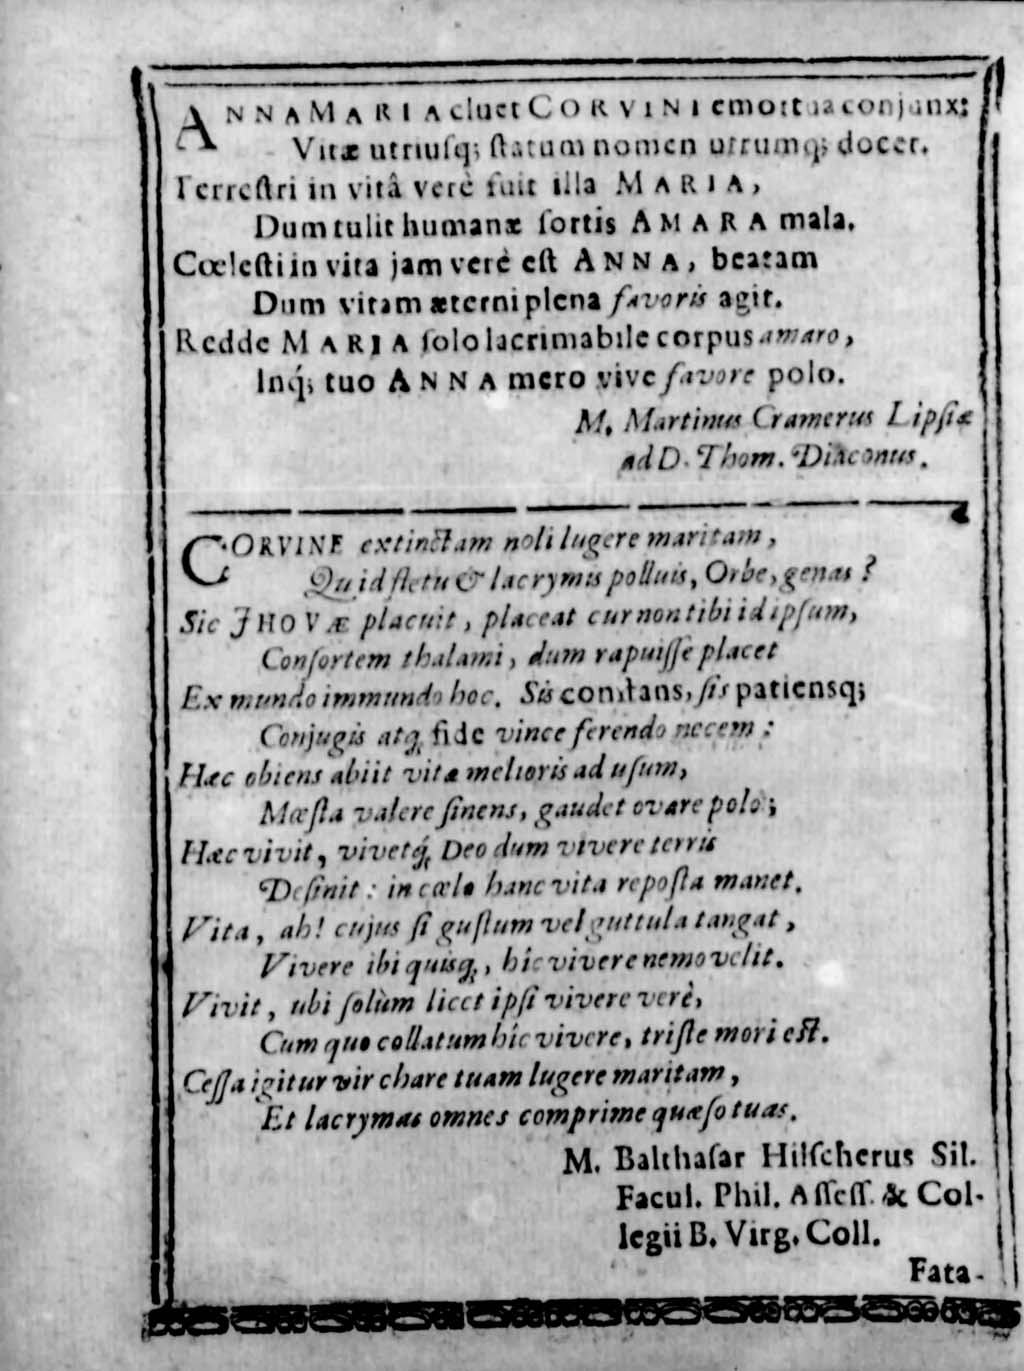 ANNA MARIA cluet CORVINI emortua conjunx:
Vitæ utriuſq; ſtatum nomen utrumq; docet.
Terreſtri in vitâ verè fuit illa MARIA,
Dum tulit humanæ ſortis AMARA mala.
Cœleſti in vita jam verè eſt ANNA, beatam
Dum vitam æterni plena favoris agit.
Redde MARIA ſolo lacrimabile corpus amaro,
Inq́; tuo ANNA mero vive favore polo.
M. Martinus Cramerus Lipſiæ
ad D. Thom. Diaconus.
CORVINE extinctam noli lugere maritam,
Quid fletu & lacrymis polluis, Orbe, genas?
Sic JHOVÆ placuit, placeat cur non tibi id ipſum,
Conſortem thalami, dum rapuiſſe placet
Ex mundo immundo hoc. Sis conſtans, ſis patiensq;
Conjugis atq; fide vince ferendo necem:
Hæc obiens abiit vitæ melioris ad uſum,
Mœſta valere ſinens, gaudet ovare polo;
Hæc vivit, vivetq́; Deo dum vivere terris
Deſinit: in cœlo hanc vita repoſta manet.
Vita, ah! cujus ſi guſtum vel guttula tangat,
Vivere ibi quisq;, hîc vivere nemo velit.
Vivit, ubi ſolùm licet ipſi vivere verè,
Cum quo collatum hîc vivere, triſte mori eſt.
Ceſſa igitur vir chare tuam lugere maritam,
Et lacrymas omnes comprime quæſo tuas.
M. Balthaſar Hilſcherus Sil.
Facul. Phil. Aſſeſſ. & Col-
legii B. Virg. Coll.
Fata-